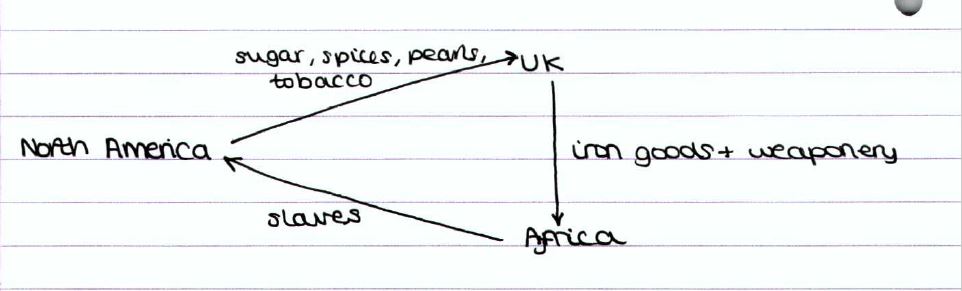 sugar, spices, pearls,
tobacco
UK
North America
iron goods + weaponery
slaves
Africa